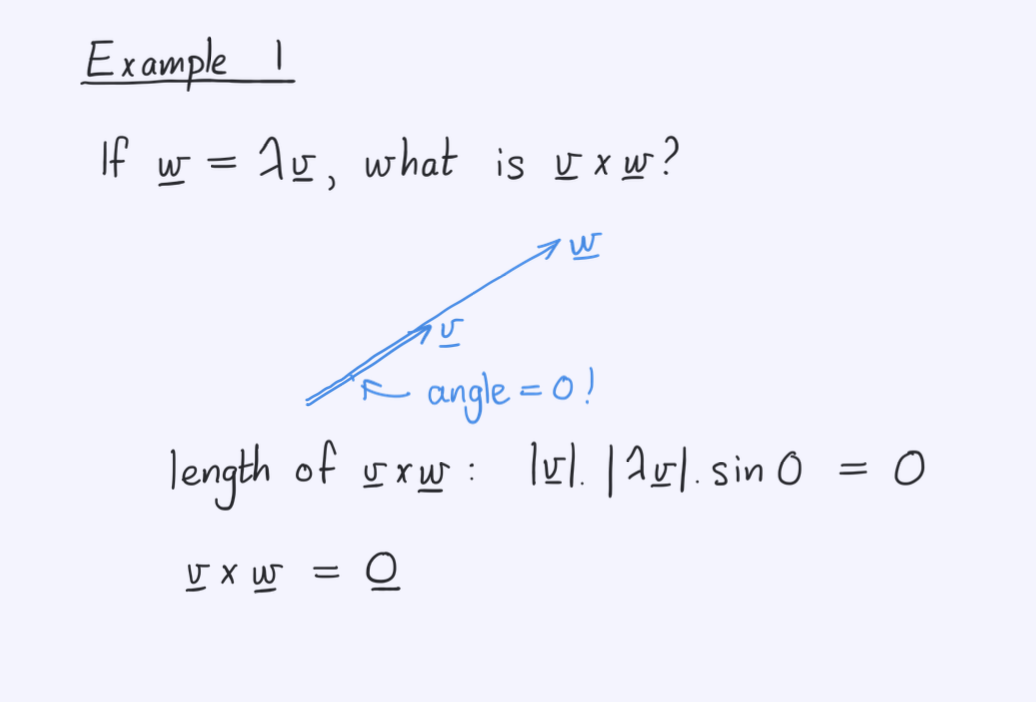 Example 1
If w = λv, what is v × w?
w
v
angle = 0!
length of v × w : |v|. |λv|. sin 0 = 0
v × w = 0